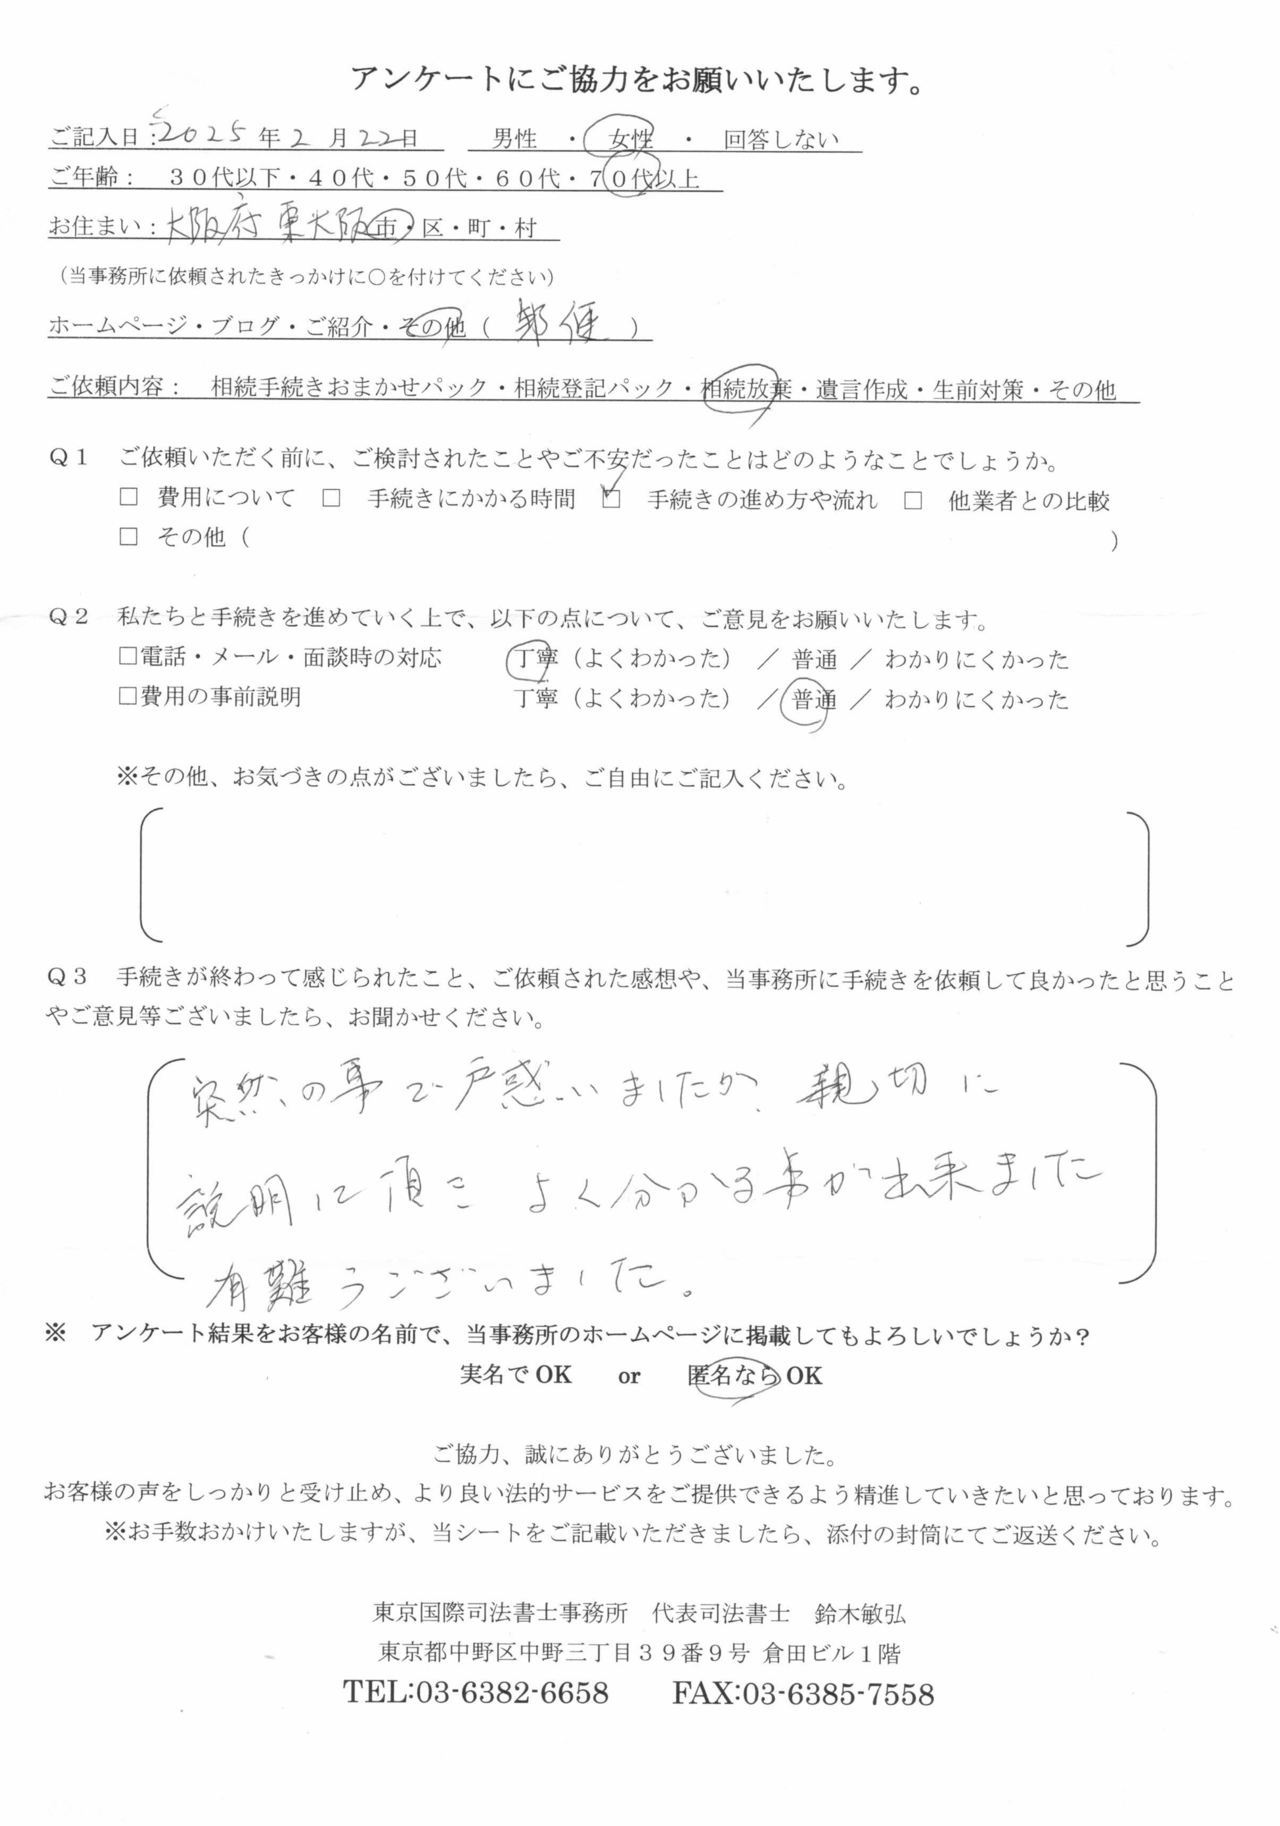 アンケートにご協力をお願いいたします。
ご記入日：2025年2月22日　男性・女性・回答しない
ご年齢：　３０代以下・４０代・５０代・６０代・７０代以上
お住まい：大阪府東大阪市・区・町・村
（当事務所に依頼されたきっかけに〇を付けてください）
ホームページ・ブログ・ご紹介・その他（郵便）
ご依頼内容：　相続手続きおまかせパック・相続登記パック・相続放棄・遺言作成・生前対策・その他
Ｑ１　ご依頼いただく前に、ご検討されたことやご不安だったことはどのようなことでしょうか。
□ 費用について □ 手続きにかかる時間 ☑ 手続きの進め方や流れ □ 他業者との比較
□ その他（　　　）
Ｑ２　私たちと手続きを進めていく上で、以下の点について、ご意見をお願いいたします。
□電話・メール・面談時の対応　丁寧（よくわかった）／普通／わかりにくかった
□費用の事前説明　丁寧（よくわかった）／普通／わかりにくかった
※その他、お気づきの点がございましたら、ご自由にご記入ください。
Ｑ３　手続きが終わって感じられたこと、ご依頼された感想や、当事務所に手続きを依頼して良かったと思うこと
やご意見等ございましたら、お聞かせください。
突然の事で戸惑いましたが、親切に
説明に頂きよく分かる事が出来ました
有難うございました。
※　アンケート結果をお客様の名前で、当事務所のホームページに掲載してもよろしいでしょうか？
実名でOK　or　匿名ならOK
ご協力、誠にありがとうございました。
お客様の声をしっかりと受け止め、より良い法的サービスをご提供できるよう精進していきたいと思っております。
※お手数おかけいたしますが、当シートをご記載いただきましたら、添付の封筒にてご返送ください。
東京国際司法書士事務所　代表司法書士　鈴木敏弘
東京都中野区中野三丁目３９番９号 倉田ビル１階
TEL:03-6382-6658　FAX:03-6385-7558